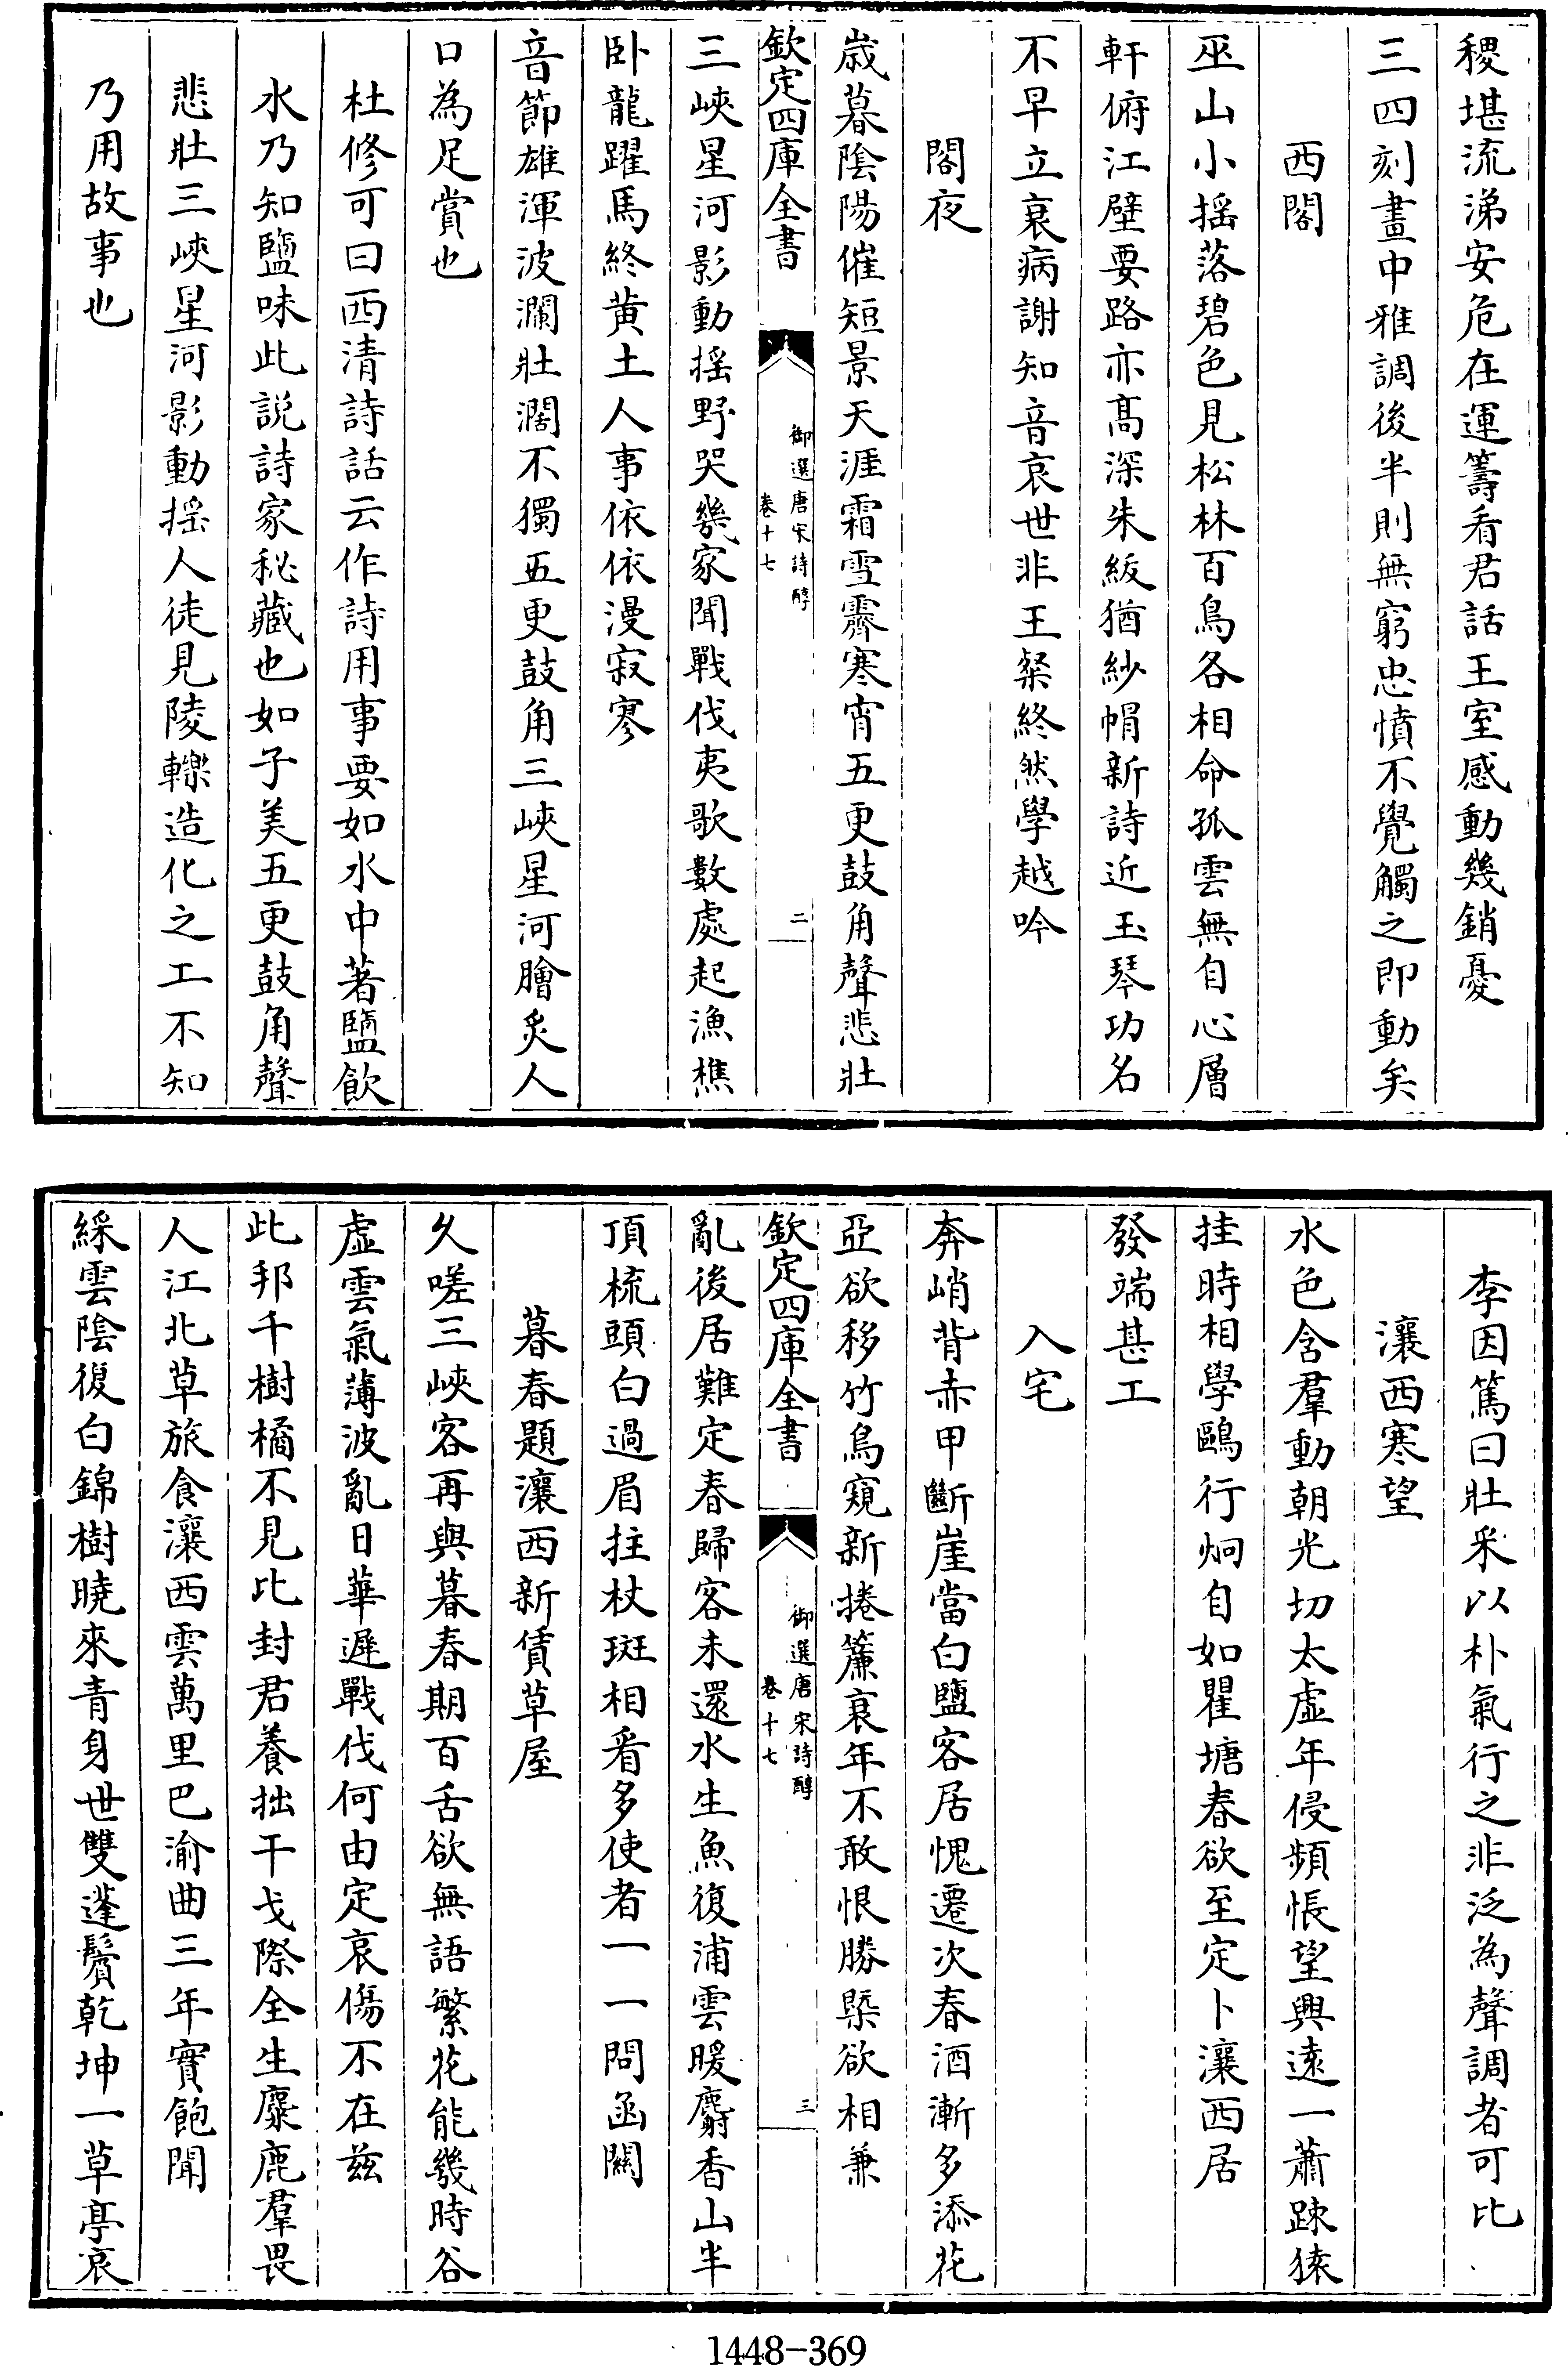 稷堪流涕安危在運籌看君話王室感動幾銷憂
三四刻畫中雅調後半則無窮忠憤不覺觸之即動矣
西閣
巫山小摇落碧色見松林百鳥各相命孤雲無自心層
軒俯江壁要路亦髙深朱紱猶紗帽新詩近玉琴功名
不早立衰病謝知音哀世非王粲終然學越吟
閣夜
歳暮陰陽催短景天涯霜雪霽寒宵五更鼓角聲悲壯
欽定四庫全書
御選唐宋詩醇
卷十七
二
三峽星河影動揺野哭幾家聞戰伐夷歌數處起漁樵
卧龍躍馬終黄土人事依依漫寂寥
音節雄渾波瀾壯濶不獨五更鼓角三峽星河膾炙人
口為足賞也
杜修可曰西清詩話云作詩用事要如水中著鹽飲
水乃知鹽味此説詩家秘藏也如子美五更鼓角聲
悲壯三峽星河影動揺人徒見陵轢造化之工不知
乃用故事也
李因篤曰壯采以朴氣行之非泛為聲調者可比
瀼西寒望
水色含羣動朝光切太虛年侵頻悵望興逺一蕭踈猿
挂時相學鷗行炯自如瞿塘春欲至定卜瀼西居
發端甚工
入宅
奔峭背赤甲斷崖當白鹽客居愧遷次春酒漸多添花
亞欲移竹鳥窺新捲簾衰年不敢恨勝槩欲相兼
欽定四庫全書
御選唐宋詩醇
卷十七
三
亂後居難定春歸客未還水生魚復浦雲暖麝香山半
頂梳頭白過眉拄杖斑相看多使者一一問函關
暮春題瀼西新賃草屋
久嗟三峽客再與暮春期百舌欲無語繁花能幾時谷
虛雲氣薄波亂日華遲戰伐何由定哀傷不在兹
此邦千樹橘不見比封君養拙干戈際全生麋鹿羣畏
人江北草旅食瀼西雲萬里巴渝曲三年實飽聞
綵雲陰復白錦樹曉來青身世雙蓬鬢乾坤一草亭哀
1448-369